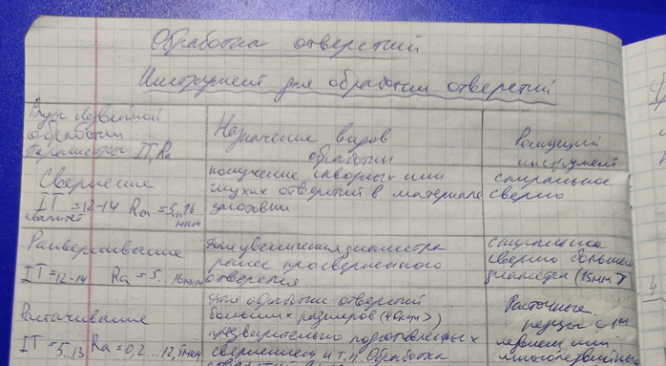 Обработка отверстий
Инструмент для обработки отверстий
Виды лезвийной
обработки
Параметры IT, Ra
Назначение видов
обработки
Режущий
инструмент
Сверление
IT = 12-14 Ra = 5...16
квалитет мкм
получение сквозных или
глухих отверстий в материале
заготовки
спиральное
сверло
Рассверливание
IT = 12-14 Ra = 5..16мкм
Для увеличения диаметра
ранее просверленного
отверстия
спиральное
сверло большего
диаметра (15мм >)
Растачивание
IT = 5..13 Ra = 0,2...12,5мкм
Для обработки отверстий
больших размеров (40мм >)
предварительно подготовленных
сверлением и т.п. Обработка
Расточные
резцы с 1им
лезвием или
многолезвийные